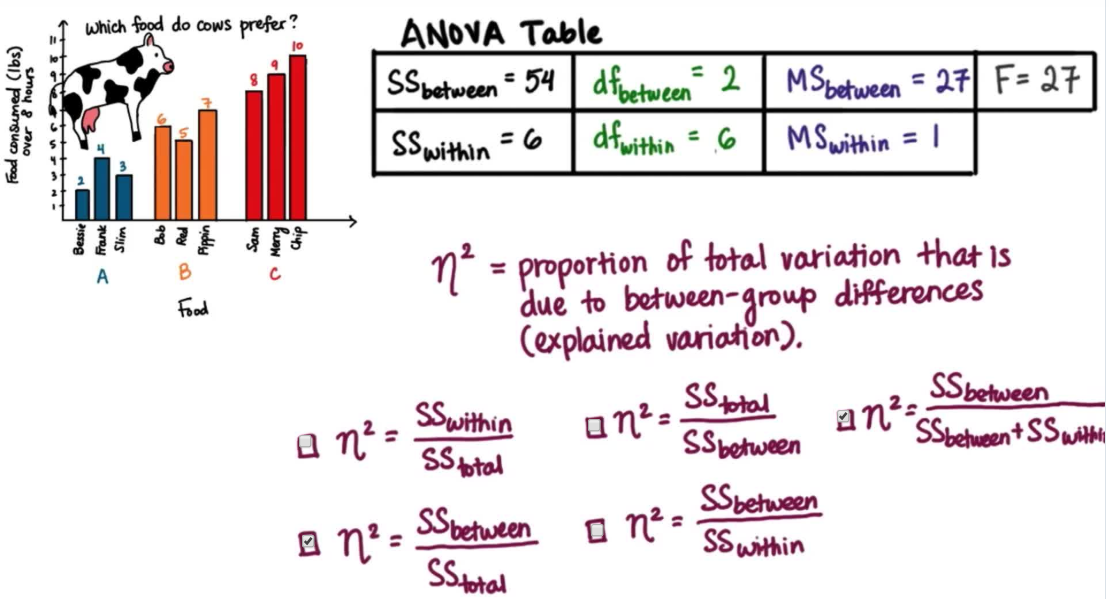 Which food do cows prefer?
Food consumed (lbs)
over 8 hours
11
10
9
8
7
6
5
4
3
2
1
2
4
3
6
5
7
8
9
10
Bessie
Frank
Slim
Bob
Red
Pippin
Sam
Merry
Chip
A
B
C
Food
ANOVA Table
SSbetween = 54
dfbetween = 2
MSbetween = 27
F = 27
SSwithin = 6
dfwithin = 6
MSwithin = 1
η² = proportion of total variation that is
due to between-group differences
(explained variation).
η² = SSwithin / SStotal
η² = SStotal / SSbetween
η² = SSbetween / SSbetween + SSwithin
η² = SSbetween / SStotal
η² = SSbetween / SSwithin